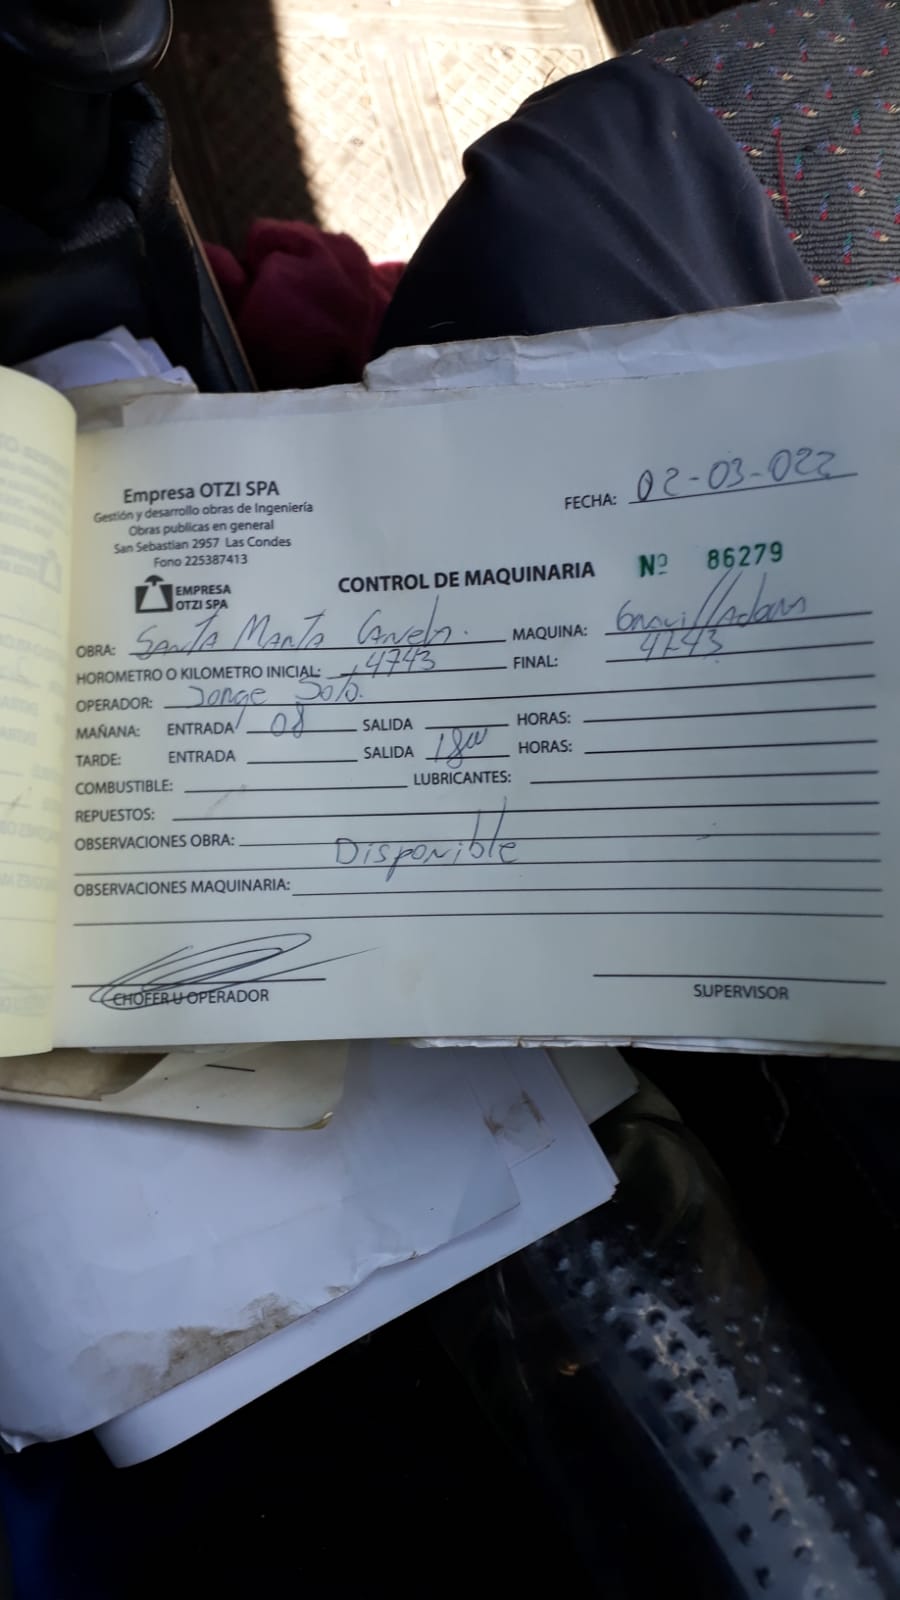 Empresa OTZI SPA
Gestión y desarrollo obras de Ingeniería
Obras publicas en general
San Sebastian 2957 Las Condes
Fono 225387413
EMPRESA
OTZI SPA
FECHA: 02-03-022
CONTROL DE MAQUINARIA Nº 86279
OBRA: Santa Marta MAQUINA:
HOROMETRO O KILOMETRO INICIAL: 4743 FINAL: 4743
OPERADOR: Jorge Soto.
MAÑANA: ENTRADA 08 SALIDA HORAS:
TARDE: ENTRADA SALIDA 18 HORAS:
COMBUSTIBLE: LUBRICANTES:
REPUESTOS:
OBSERVACIONES OBRA:
Disponible
OBSERVACIONES MAQUINARIA:
CHOFER U OPERADOR SUPERVISOR